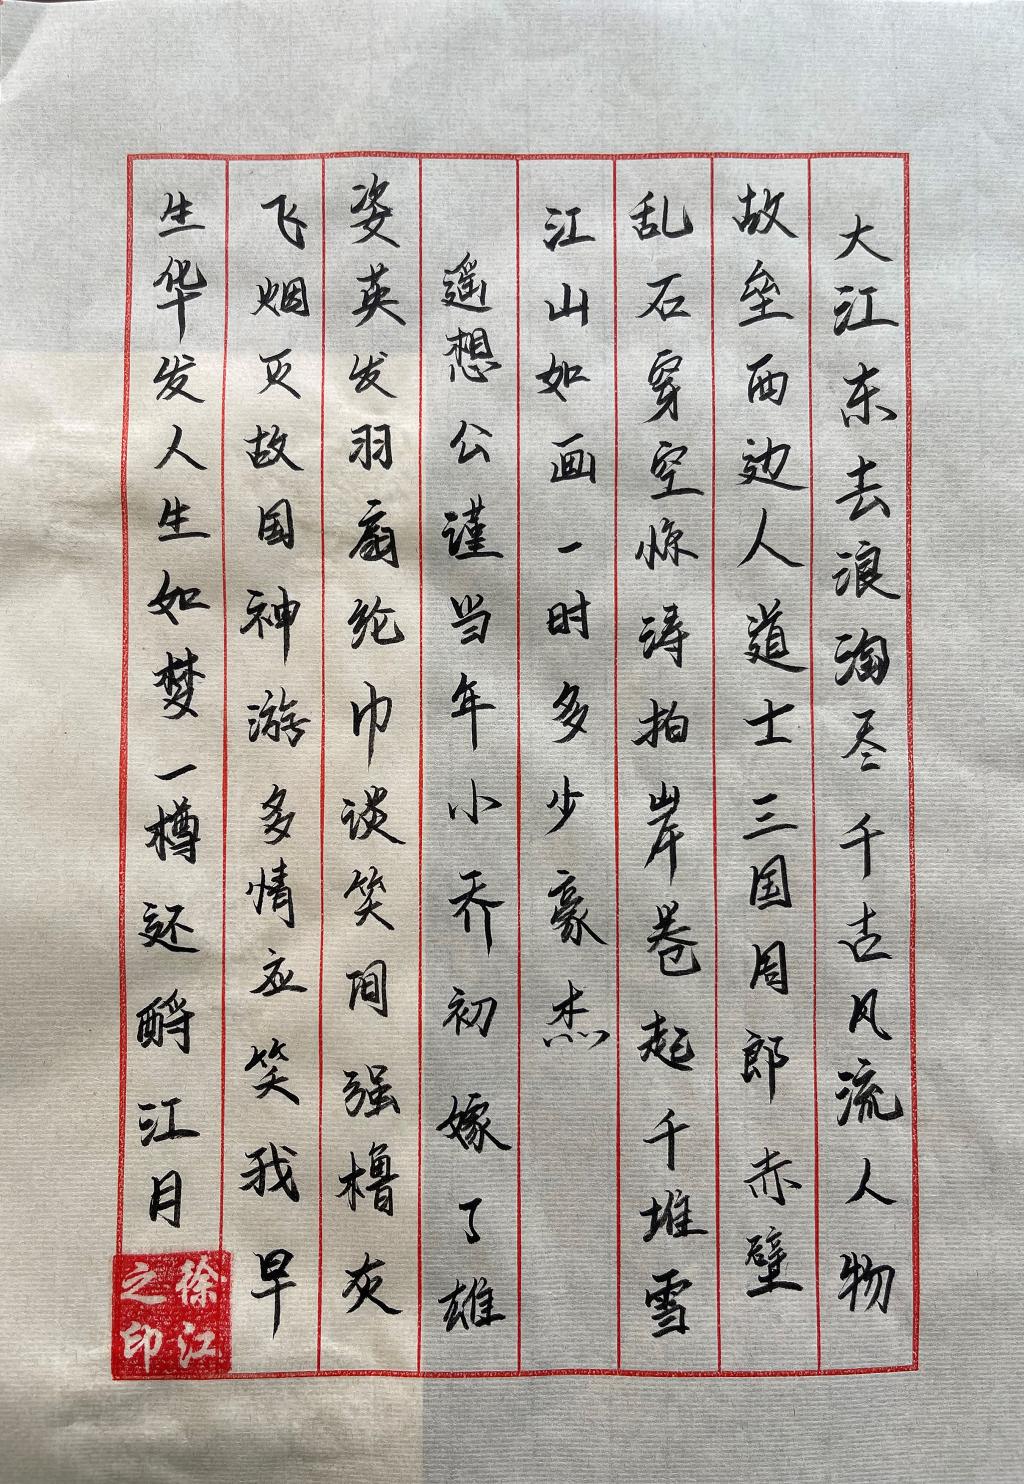 大江东去浪淘尽千古风流人物
故垒西边人道士三国周郎赤壁
乱石穿空惊涛拍岸卷起千堆雪
江山如画一时多少豪杰
遥想公谨当年小乔初嫁了雄
姿英发羽扇纶巾谈笑间强橹灰
飞烟灭故国神游多情应笑我早
生华发人生如梦一樽还酹江月
徐江
之印